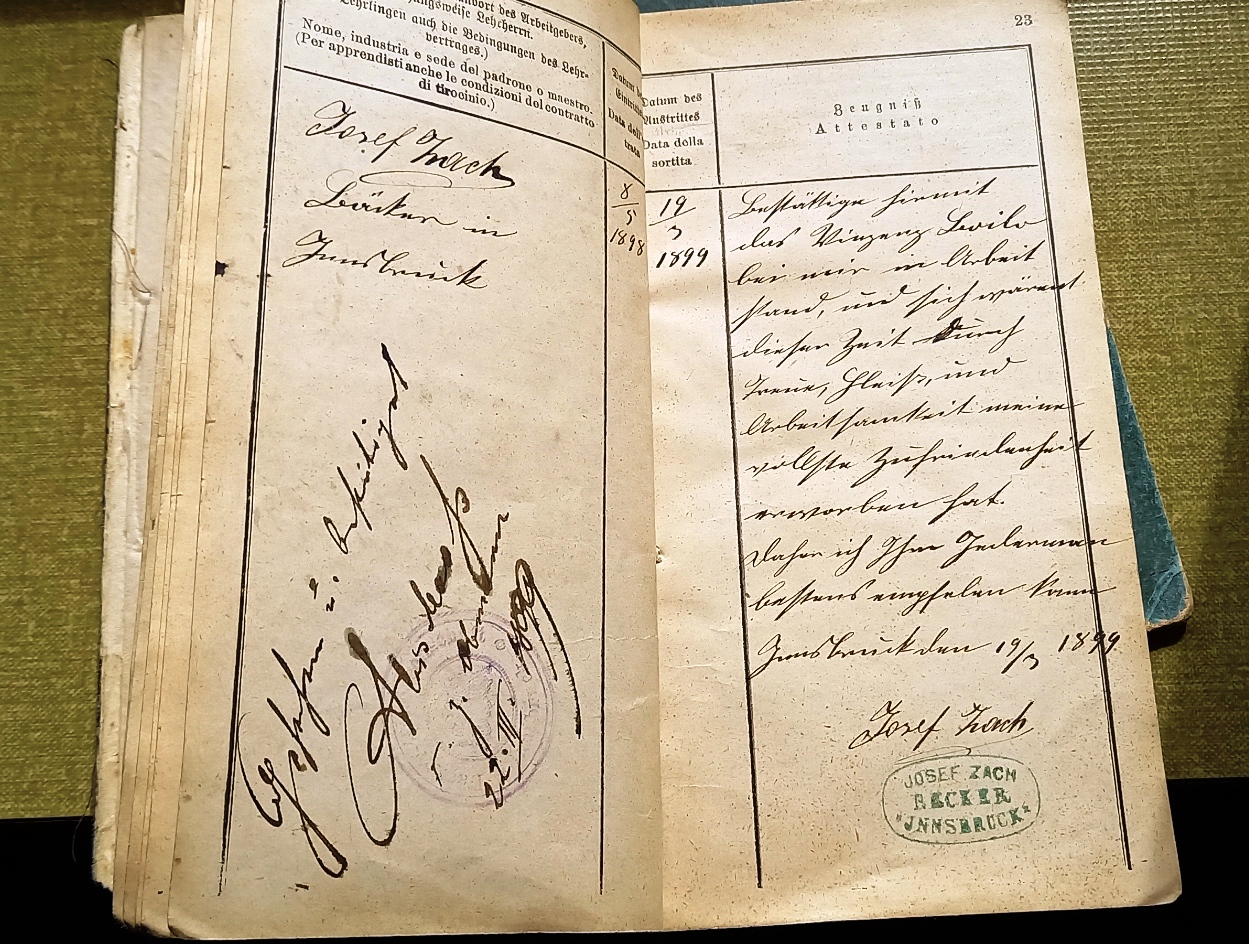 ndort des Arbeitgebers,
ungsweise Lehrherrn.
Lehrlingen auch die Bedingungen des Lehr-
vertrages.)
Nome, industria e sede del padrone o maestro.
(Per apprendisti anche le condizioni del contratto
di tirocinio.)
Datum
Eintritt
Data dell'
trata
Josef Zach
Bäcker in
Innsbruck
8
5
1898
Gesehen u. bestätigt
22. III. 1899
23
Datum des
Austrittes
Data della
sortita
Zeugniß
Attestato
19
3
1899
Bestättige hirmit
das Vinzenz
bei mir in Arbeit
stand, und sich wärent
dieser Zeit durch
Treue, Fleiß, und
Arbeitsamkeit meine
vollste Zufriedenheit
erworben hat.
Daher ich Ihm Jederman
bestens empfelen kann
Innsbruck den 19/3 1899
Josef Zach
JOSEF ZACH
BECKER
"JNNSBRUCK"